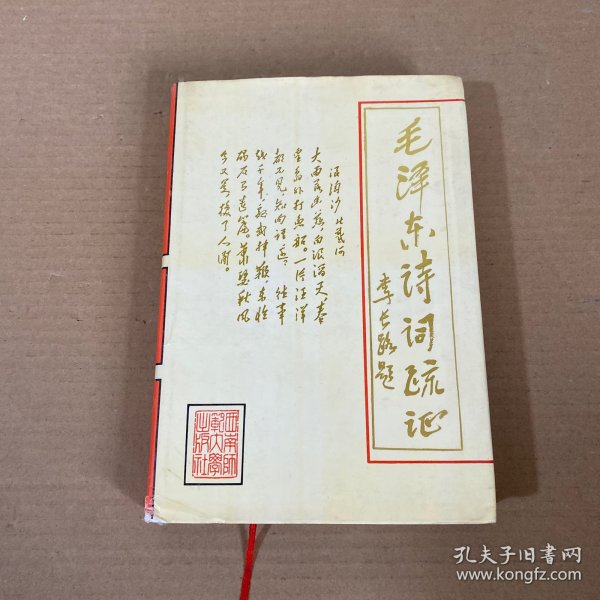 毛泽东诗词疏证
李长路题
浪淘沙 北戴河
大雨落幽燕,白浪滔天,秦
皇岛外打鱼船。一片汪洋
都不见,知向谁边?往事
越千年,魏武挥鞭,东临
碣石有遗篇。萧瑟秋风
今又是,换了人间。
西南師
範大學
出版社
孔夫子旧书网
www.kongfz.com